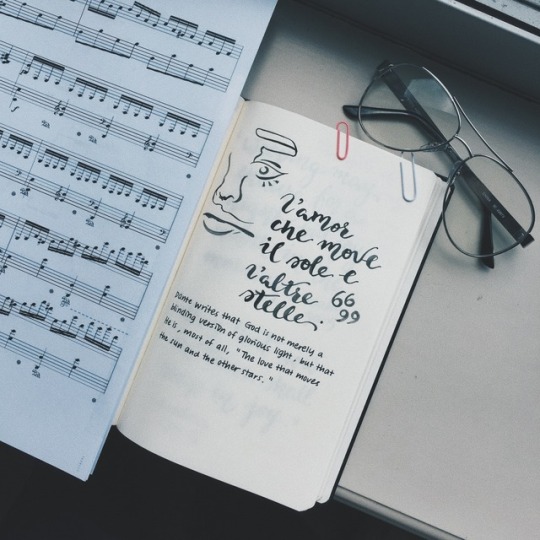 l'amor
che move
il sole e
l'altre
stelle.
66
99
Dante writes that God is not merely a
blinding version of glorious light, but that
He is, most of all, "The love that moves
the sun and the other stars."